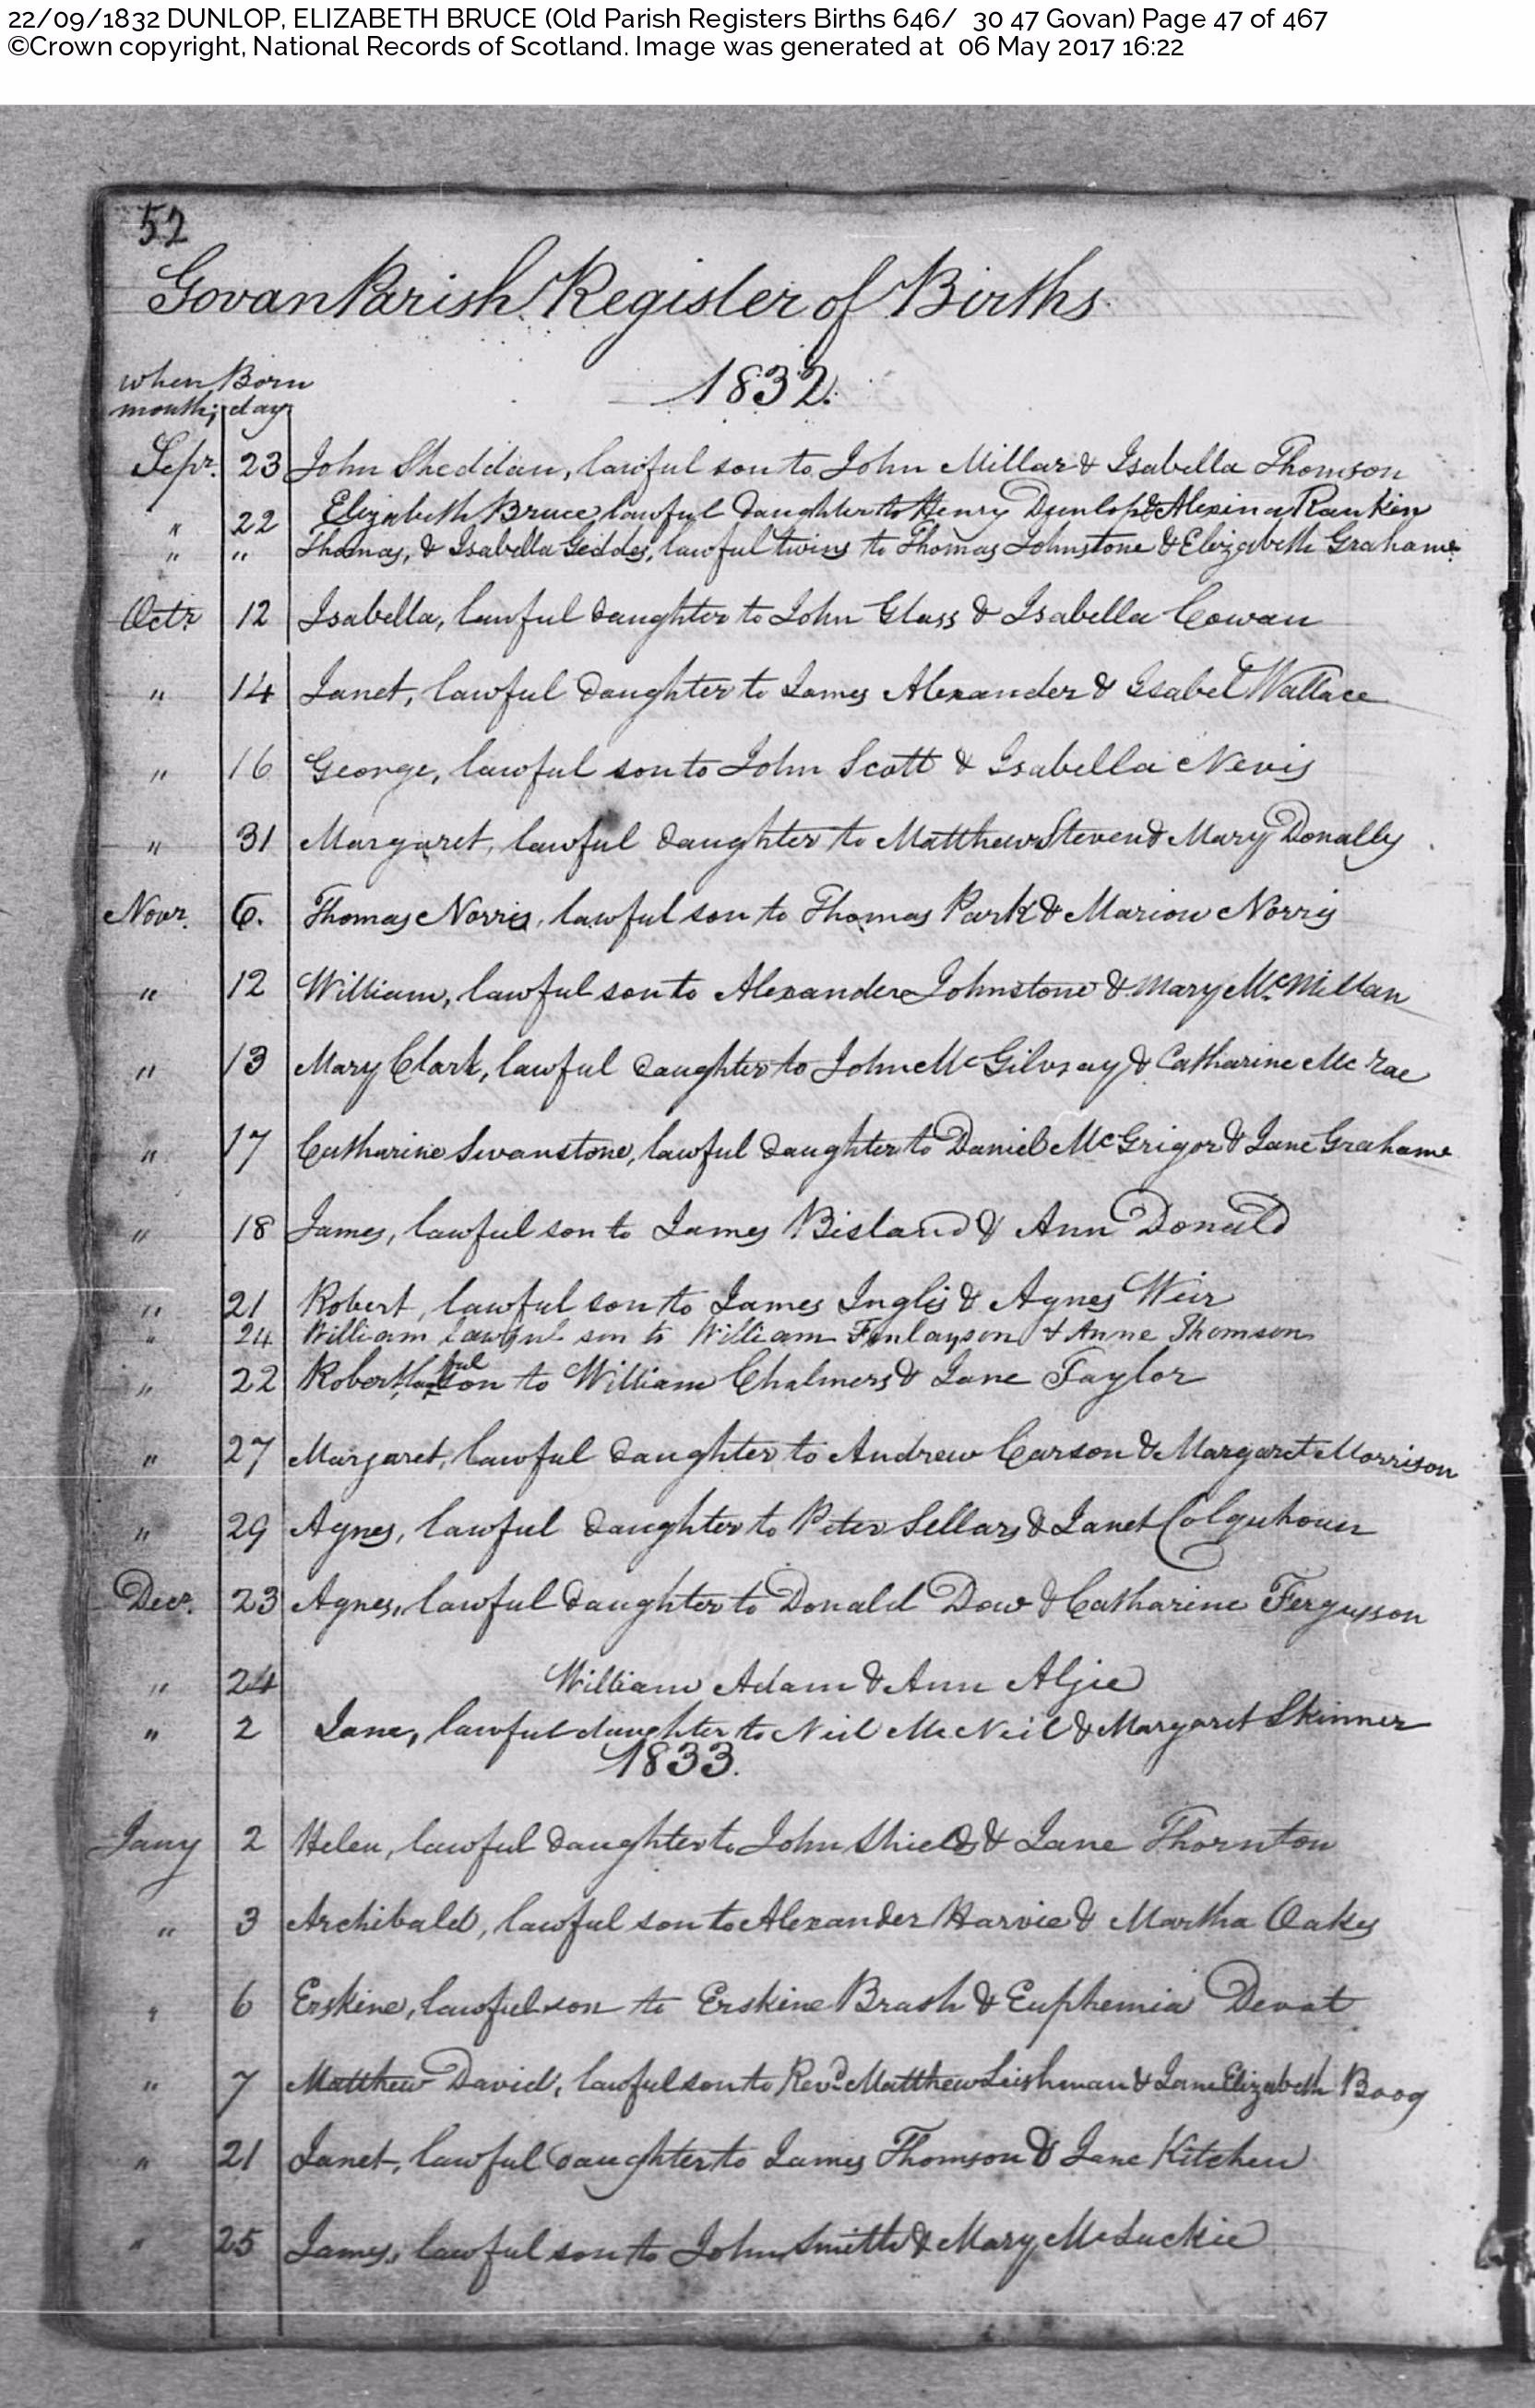 22/09/1832 DUNLOP, ELIZABETH BRUCE (Old Parish Registers Births 646/ 30 47 Govan) Page 47 of 467
©Crown copyright, National Records of Scotland. Image was generated at 06 May 2017 16:22
52
Govan Parish Register of Births
when Born
month; day
1832.
Sepr. 23 John Sheddan, lawful son to John Millar & Isabella Thomson
" 22 Elizabeth Bruce, lawful daughter to Henry Dunlop & Alexina Rankin
" " Thomas, & Isabella Geddes, lawful twins to Thomas Johnstone & Elizabeth Grahame
Octr 12 Isabella, lawful daughter to John Glass & Isabella Cowan
" 14 Janet, lawful daughter to James Alexander & Isabel Wallace
" 16 George, lawful son to John Scott & Isabella Nevis
" 31 Margaret, lawful daughter to Matthew Steven & Mary Donally
Novr. 6. Thomas Norris, lawful son to Thomas Park & Marion Norris
" 12 William, lawful son to Alexander Johnstone & Mary Mc Millan
" 13 Mary Clark, lawful daughter to John Mc Gilvray & Catharine Mc rae
" 17 Catharine Swanstone, lawful daughter to Daniel Mc Grigor & Jane Grahame
" 18 James, lawful son to James Bisland & Ann Donald
" 21 Robert, lawful son to James Inglis & Agnes Weir
" 24 William lawful son to William Finlayson & Anne Thomson
" 22 Robert lawful son to William Chalmers & Jane Taylor
" 27 Margaret, lawful daughter to Andrew Carson & Margaret Morrison
" 29 Agnes, lawful daughter to Peter Sellars & Janet Colquhoun
Decr. 23 Agnes, lawful daughter to Donald Dow & Catharine Fergusson
" 24 William Adam & Ann Algie
" 2 Jane, lawful daughter to Neil Mc Neil & Margaret Skinner
1833.
Jany 2 Helen, lawful daughter to John Shields & Jane Thornton
" 3 Archibald, lawful son to Alexander Harvie & Martha Oakes
" 6 Erskine, lawful son to Erskine Brash & Euphemia Devat
" 7 Matthew David, lawful son to Revd. Matthew Leishman & Jane Elizabeth Boog
" 21 Janet, lawful daughter to James Thomson & Jane Kitchen
" 25 James, lawful son to John Smith & Mary Mc Luckie